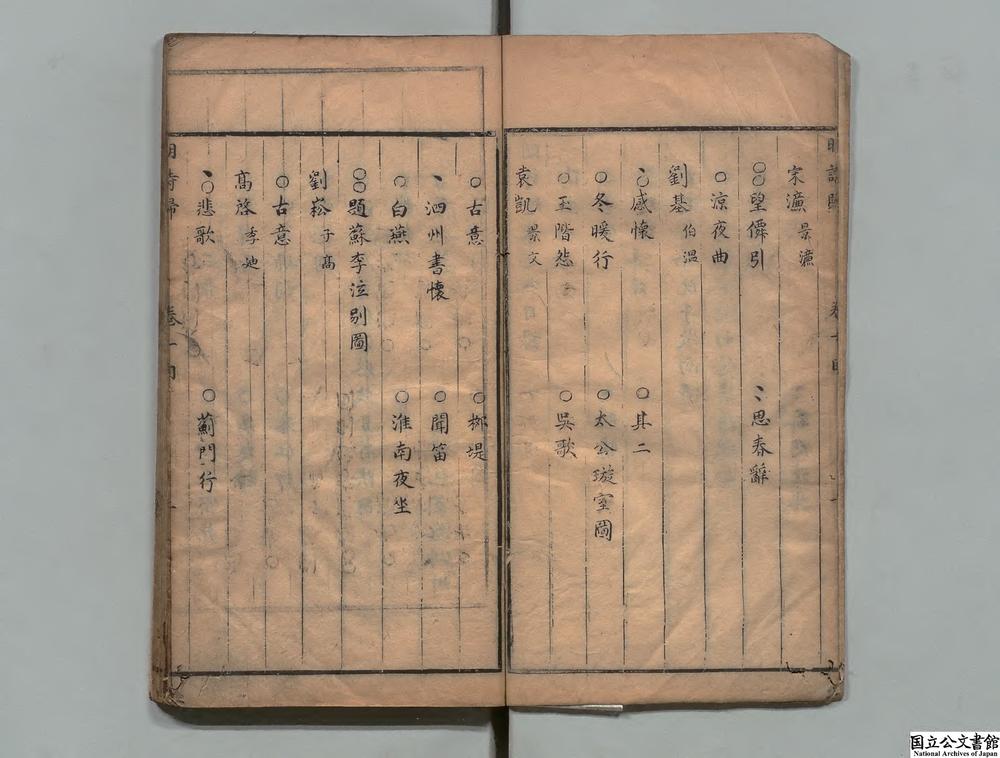 宋濂 景濂
○○望僊引 、思春辭
○涼夜曲
劉基 伯溫
、○感懷 ○其二
○冬暖行 ○太公璇室圖
○玉階怨 ○吳歌
袁凱 景文
○古意 ○柳堤
、泗州書懷 ○聞笛
○白燕 ○淮南夜坐
○○題蘇李泣別圖
劉崧 子高
○古意
高啓 季迪
、○悲歌 ○薊門行
明詩歸 卷一目 一
国立公文書館
National Archives of Japan